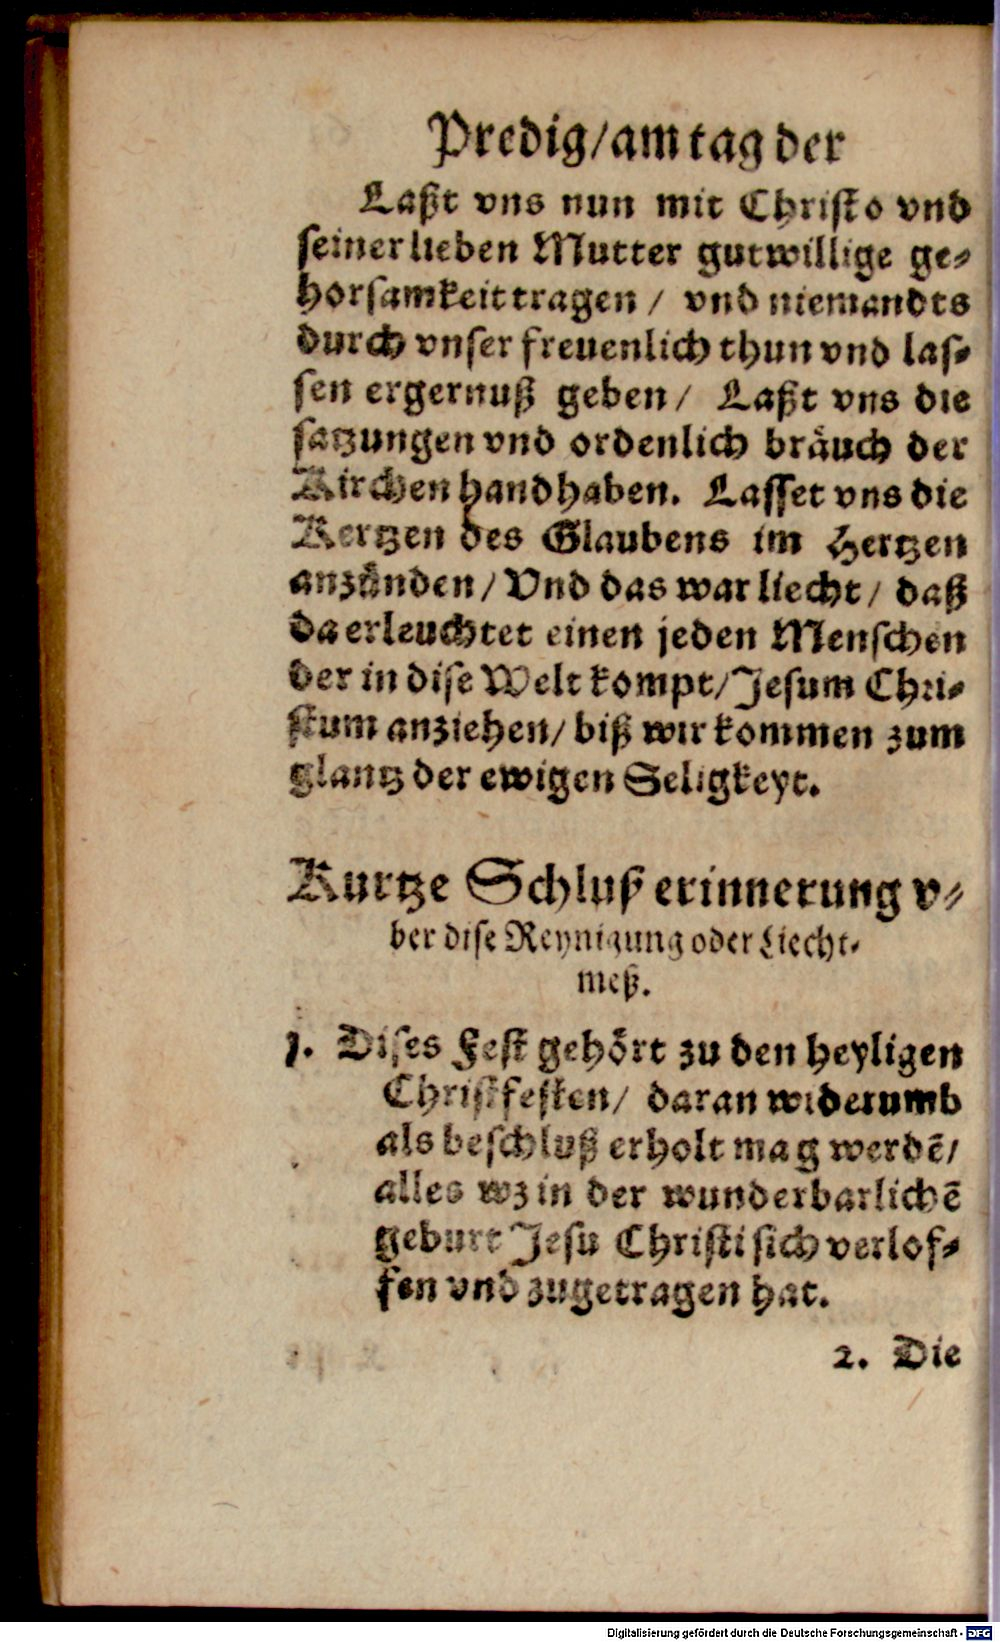 Predig/am tag der
Laßt vns nun mit Christo vnd
seiner lieben Mutter gutwillige ge-
horsamkeit tragen / vnd niemandts
durch vnser freuenlich thun vnd las-
sen ergernuß geben / Laßt vns die
satzungen vnd ordenlich bräuch der
Kirchen handhaben. Lasset vns die
Kertzen des Glaubens im Hertzen
anzünden / Vnd das war liecht / daß
da erleuchtet einen jeden Menschen
der in dise Welt kompt / Jesum Chri-
stum anziehen / biß wir kommen zum
glantz der ewigen Seligkeyt.
Kurtze Schluß erinnerung v-
ber dise Reynigung oder Liecht-
meß.
1. Dises Fest gehört zu den heyligen
Christfesten / daran widerumb
als beschluß erholt mag werdē /
alles wz in der wunderbarlichē
geburt Jesu Christi sich verlof-
fen vnd zugetragen hat.
2. Die
Digitalisierung gefördert durch die Deutsche Forschungsgemeinschaft - DFG